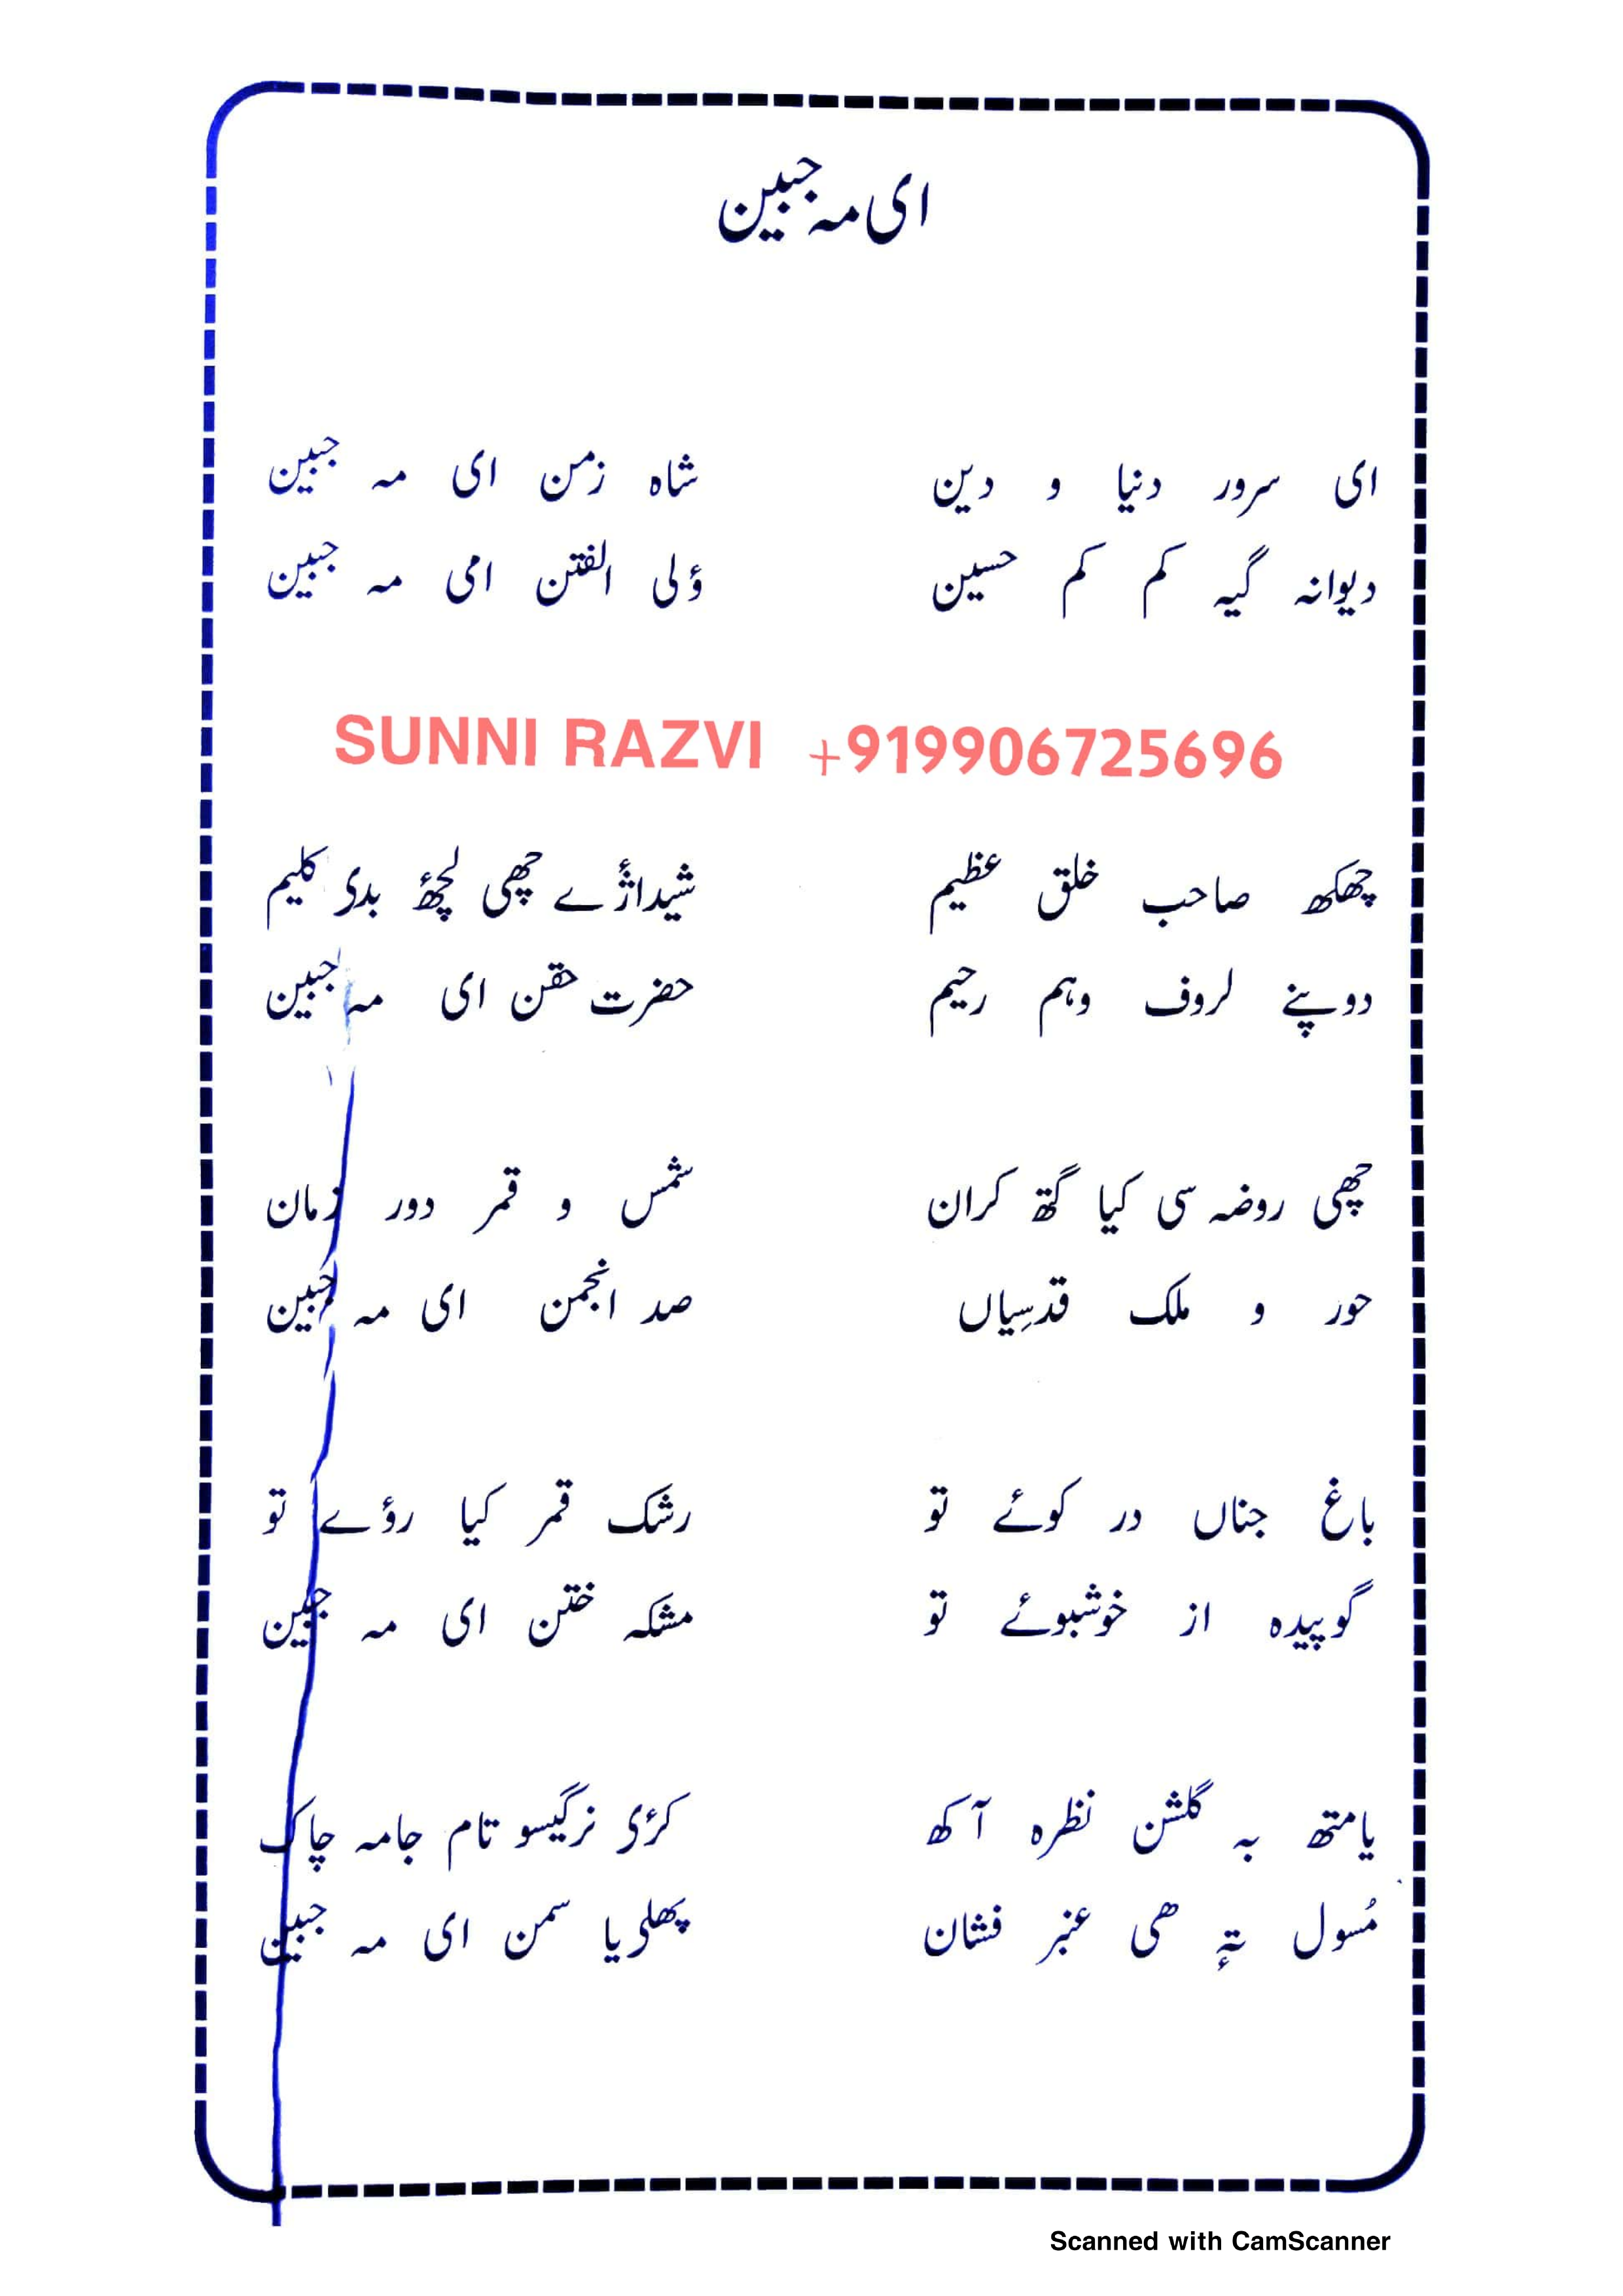 ای مہ جبین
ای سرور دنیا و دین شاہ زمن ای مہ جبین
دیوانہ گیہ کم کم حسین ؤلی الفتن امی مہ جبین
SUNNI RAZVI +919906725696
چھکھ صاحب خلق عظیم شیداژٔے چھی لچھؤ بدی کلیم
دوپنے لروف وہم رحیم حضرت حقن ای مہ جبین
چھی روضہ سی کیا گتھ کران شمس و قمر دور زمان
حور و ملک قدسِیاں صد انجمن ای مہ جبین
باغ جناں در کوئے تو رشک قمر کیا رؤے تو
گوپیدہ از خوشبوئے تو مشکہ ختن ای مہ جبین
یامتھ بہ گلشن نظرہ آکھ کرٔی نرگیسو تام جامہ چاک
مُسول تہٕ ھی عنبر فشان پھلی یا سمن ای مہ جبین
Scanned with CamScanner